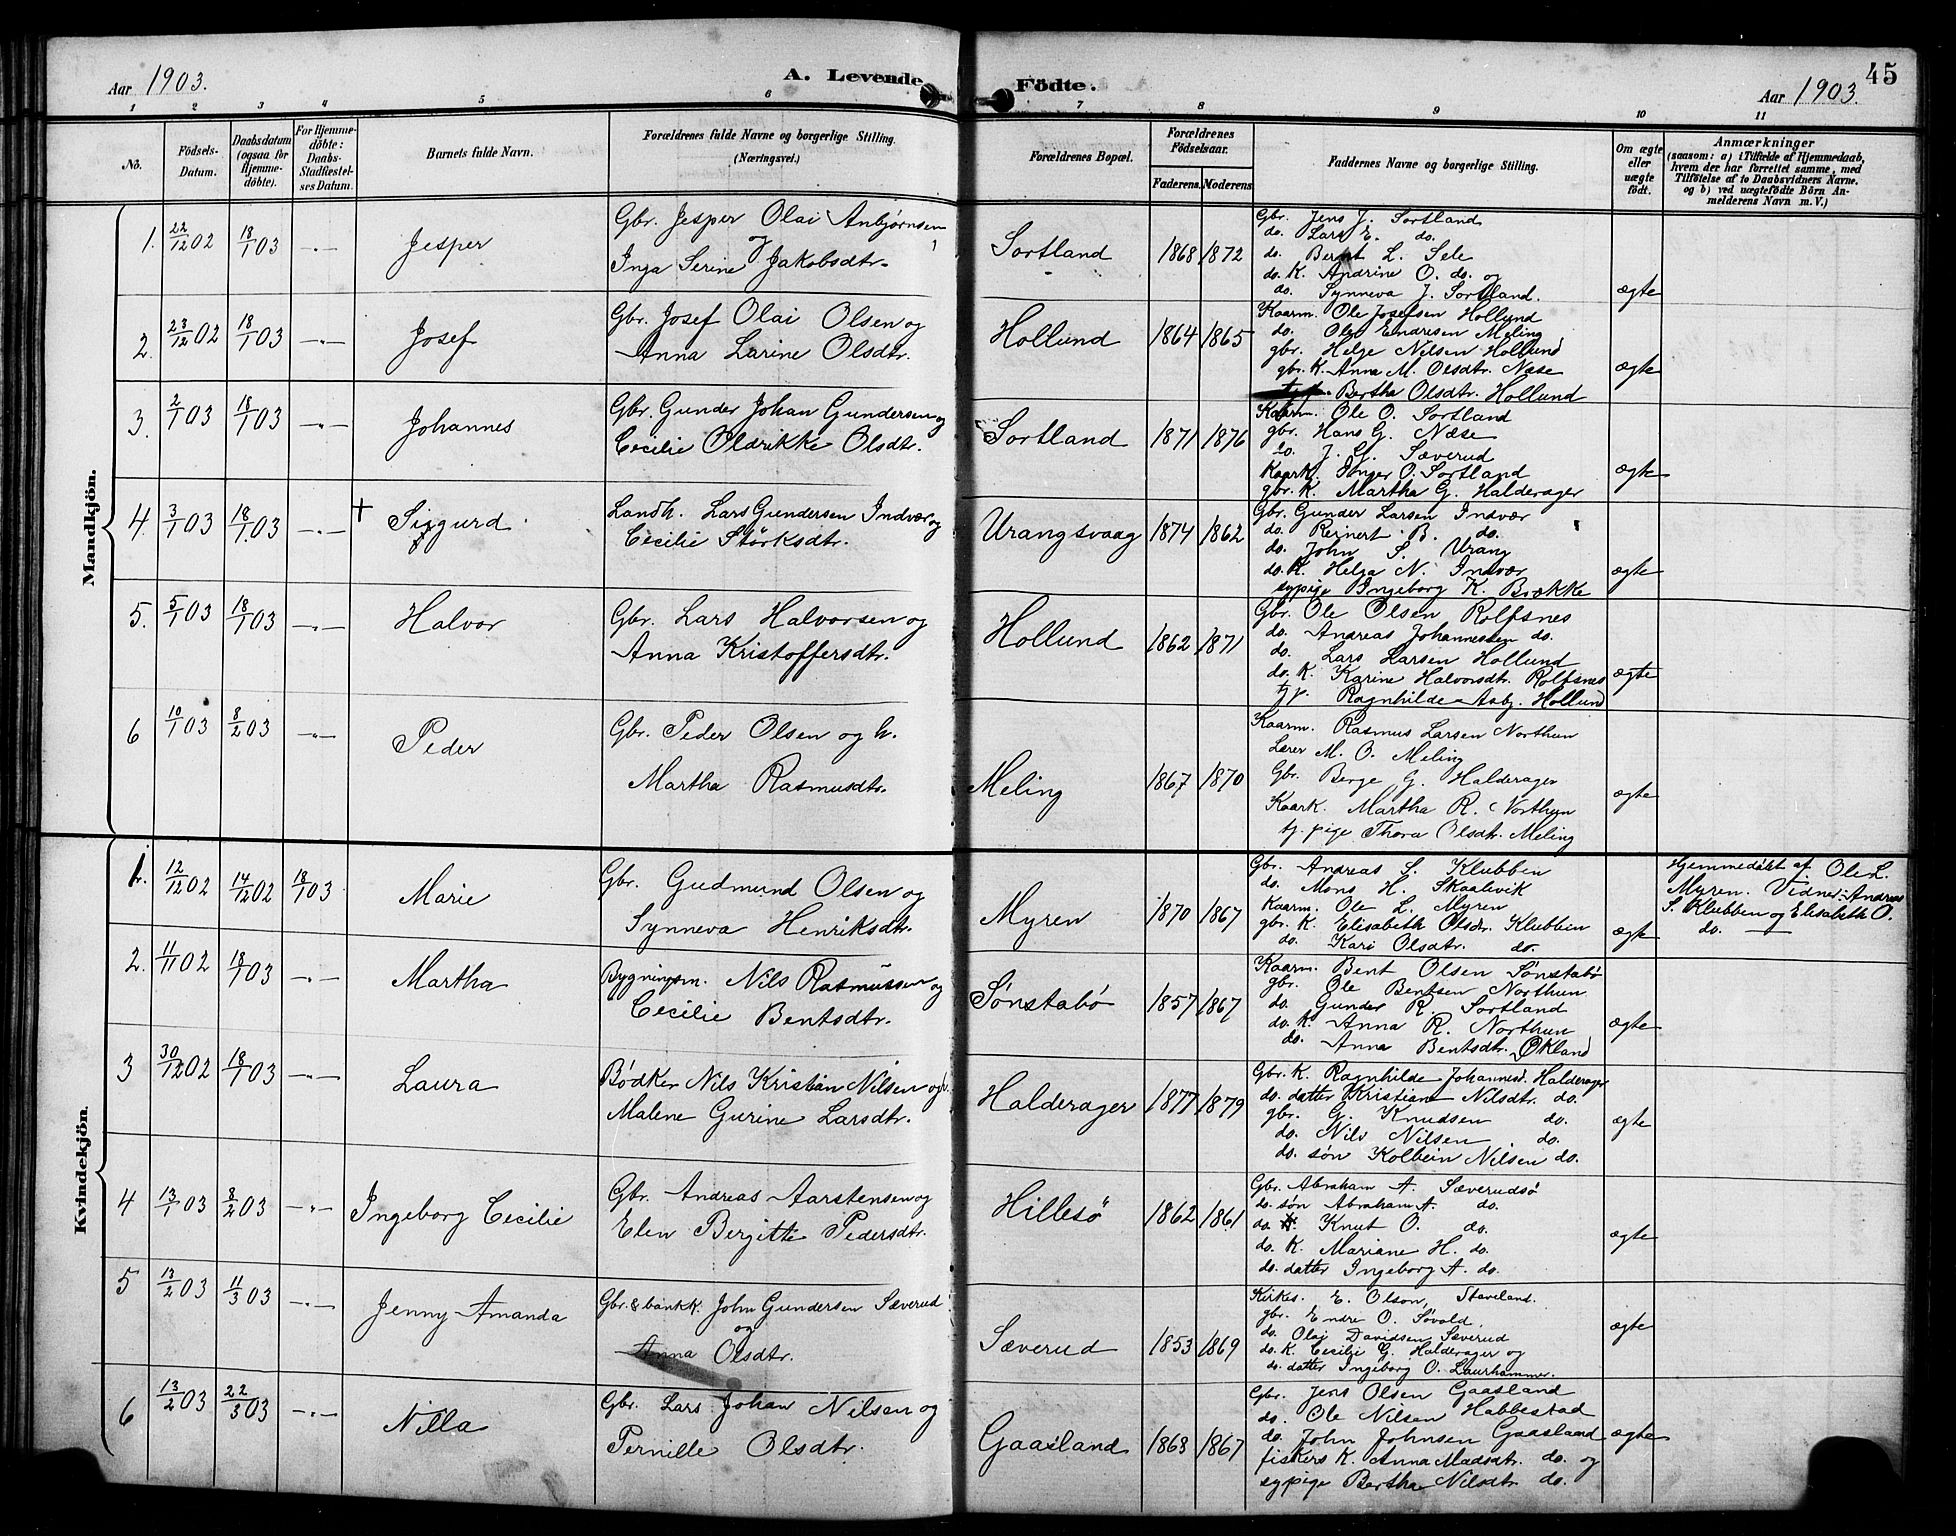 Aar 1903.
A. Levende
Födte.
Aar 1903.
45
1 2 3 4 5 6 7 8 9 10 11
No.
Födsels-
Datum.
Daabsdatum
(ogsaa for
Hjemme-
döbte).
For Hjemme-
döbte:
Daabs-
Stadfæstel-
ses Datum.
Barnets fulde Navn.
Forældrenes fulde Navne og borgerlige Stilling.
(Næringsvei.)
Forældrenes Bopæl.
Forældrenes
Födselsaar.
Faderens.
Moderens
Faddernes Navne og borgerlige Stilling.
Om ægte
eller
uægte
födt.
Anmærkninger
(saasom: a) i Tilfælde af Hjemmedaab,
hvem der har forrettet samme, med
Tilföielse af to Daabsvidners Navne.
og b) ved uægtefödte Börn An-
melderens Navn m. V.)
Mandkjön.
1. 22/12 02 18/1 03 -"- Jesper
Gbr. Jesper Olai Anbjørnsen
og
Inga Serine Jakobsdtr.
Sortland 1868 1872
Gbr. Jens J. Sortland
do. Lars E. do.
do. Bernt L. Sele
do. K. Andrine O. do. og
do. Synneva J. Sortland.
ægte
2. 23/12 02 18/1 03 -"- Josef
Gbr. Josef Olai Olsen og
Anna Larine Olsdtr.
Hollund 1864 1865
Kaarm. Ole Josefsen Hollund
do. Ole Endresen Meling
gbr. Helge Nilsen Hollund
gbr. K. Anna M. Olsdtr. Næse
Bertha Olsdtr. Hollund
ægte
3. 2/1 03 18/1 03 -"- Johannes
Gbr. Gunder Johan Gundersen og
Cecilie Oldrikke Olsdtr.
Sortland 1871 1876
Kaarm. Ole O. Sortland
gbr. Hans G. Næse
do. J. G. Sæverud
Kaark. Inger O. Sortland
gbr. K. Martha G. Halderager
ægte
4. 3/1 03 18/1 03 -"- + Sigurd
Landh. Lars Gundersen Indvær og
Cecilie Størksdtr.
Urangsvaag 1874 1862
Gbr. Gunder Larsen Indvær
do. Reinert B. do.
do. John S. Urang
do. K. Helga N. Indvær
sypige Ingeborg K. Brække
ægte
5. 5/1 03 18/1 03 -"- Halvor
Gbr. Lars Halvorsen og
Anna Kristoffersdtr.
Hollund 1862 1871
Gbr. Ole Olsen Rolfsnes
do. Andreas Johannessen do.
do. Lars Larsen Hollund
do. K. Karine Halvorsdtr. Rolfsnes
tj. p. Ragnhilde Asbj. Hollund
ægte
6 10/1 03 8/2 03 -"- Peder
Gbr. Peder Olsen og h.
Martha Rasmusdtr.
Meling 1867 1870
Kaarm. Rasmus Larsen Northun
Lærer M. O. Meling
Gbr. Berge G. Halderager
Kaark. Martha R. Northun
tj. pige Thora Olsdtr. Meling
ægte
Kvindekjön.
1. 12/12 02 14/12 02 18/1 03 Marie
Gbr. Gudmund Olsen og
Synneva Henriksdtr.
Myren 1870 1867
Gbr. Andreas L. Klubben
do. Mons H. Skaalevik
Kaarm. Ole L. Myren
gbr. K. Elisabeth Olsdtr. Klubben
do. Kari Olsdtr. do.
ægte
Hjemmedøbt af Ole L.
Myren. Vidner: Andreas
S. Klubben og Elisabeth O.
do.
2. 11/11 02 18/1 03 -"- Martha
Bygningsm. Nils Rasmussen og
Cecilie Bentsdtr.
Sønstabø 1857 1867
Kaarm. Bent Olsen Sønstabø
gbr. Ole Bentsen Northun
do. Gunder R. Sortland
do. K. Anna R. Northun
do. Anna Bentsdtr. Økland
ægte
3 30/12 02 18/1 03 -"- Laura
Bødker Nils Kristian Nilsen og h.
Malene Gurine Larsdtr.
Halderager 1877 1879
Gbr. K. Ragnhilde Johannesd. Halderager
do. datter Kristiane Nilsdtr. do.
gbr. G. Knudsen do.
do. Nils Nilsen do.
do. søn Kolbein Nilsen do.
ægte
4 13/1 03 8/2 03 -"- Ingeborg Cecilie
Gbr. Andreas Aarstensen og
Elen Bergitte Pedersdtr.
Hillesö 1862 1861
Gbr. Abraham A. Sæverudsø
do. søn Abraham A. do.
do. Knut O. do.
do. K. Mariane H. do.
do. datter Ingeborg A. do.
ægte
5 13/2 03 11/3 03 -"- Jenny Amanda
Gbr. & bankk. John Gundersen Sæverud
og
Anna Olsdtr.
Sæverud 1853 1869
Kirkes. E. Olson, Staveland.
gbr. Endre O. Søvold.
do. Olai Davidsen Sæverud
do. K. Cecilie G. Halderager og
do. datter Ingeborg O. Laurhammer.
ægte
6 13/2 03 22/3 03 -"- Nilla
Gbr. Lars Johan Nilsen og
Pernille Olsdtr.
Gaasland 1868 1867
Gbr. Jens Olsen Gaasland
do. Ole Nilsen Habbestad
do. John Johnsen Gaasland
fiskers K. Anna Madsdtr. do. og
sypige Bertha Nilsdtr. do.
ægte